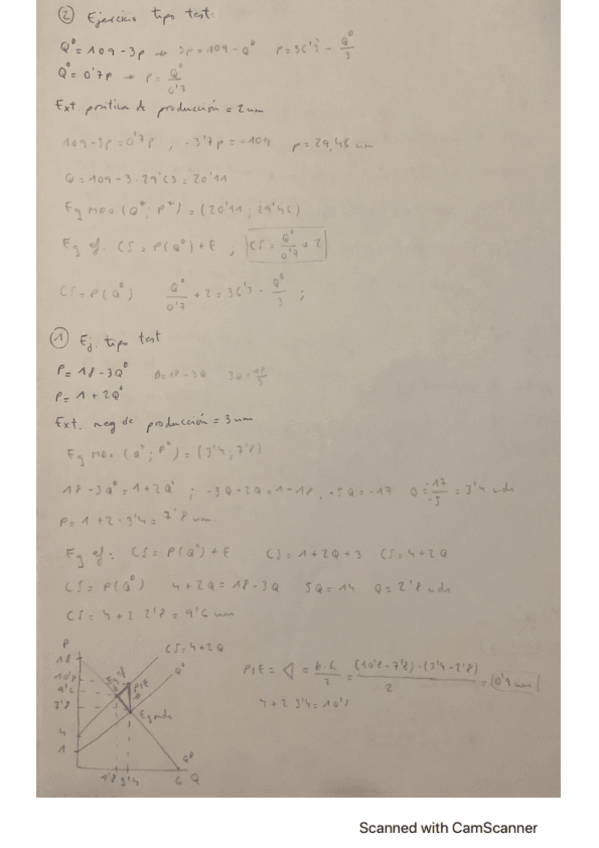 ② Ejercicio tipo test:
Qᴰ = 109 - 3p → 3p = 109 - Qᴰ p = 36'3 - Qᴰ/3
Qˢ = 0'7p → p = Qˢ/0'7
Ext. positiva de producción = 2 um
109 - 3p = 0'7p , -3'7p = -109 p = 29,46 um
Q = 109 - 3 · 29'63 = 20'11
Eq mdo (Q*; P*) = (20'11; 29'46)
Eq ef. CS = P(Qˢ) + E ; CS = Qˢ/0'7 + 2
CS = P(Qᴰ) Qˢ/0'7 + 2 = 36'3 - Qᴰ/3 ;
① Ej. tipo test
P = 18 - 3Qᴰ
P = 1 + 2Qˢ
Ext. neg de producción = 3 um
Eq mdo (Q*; P*) = (3'4; 7'8)
18 - 3Qᴰ = 1 + 2Qˢ ; -3Q - 2Q = 1 - 18 , -5Q = -17 Q = -17/-5 = 3'4 uds
P = 1 + 2 · 3'4 = 7'8 um
Eq ef: CS = P(Qˢ) + E CS = 1 + 2Q + 3 CS = 4 + 2Q
CS = P(Qᴰ) 4 + 2Q = 18 - 3Q 5Q = 14 Q = 2'8 uds
CS = 4 + 2 · 2'8 = 9'6 um
P
18
10'8
9'6
7'8
4
1
Eq ef
PIE
CS = 4 + 2Q
Qˢ
Eq mdo
Qᴰ
3'4 6 Q
PIE = ◁ = b·h/2 = (10'8 - 7'8) · (3'4 - 2'8)/2 = 0'9 um
4 + 2 · 3'4 = 10'8
Scanned with CamScanner